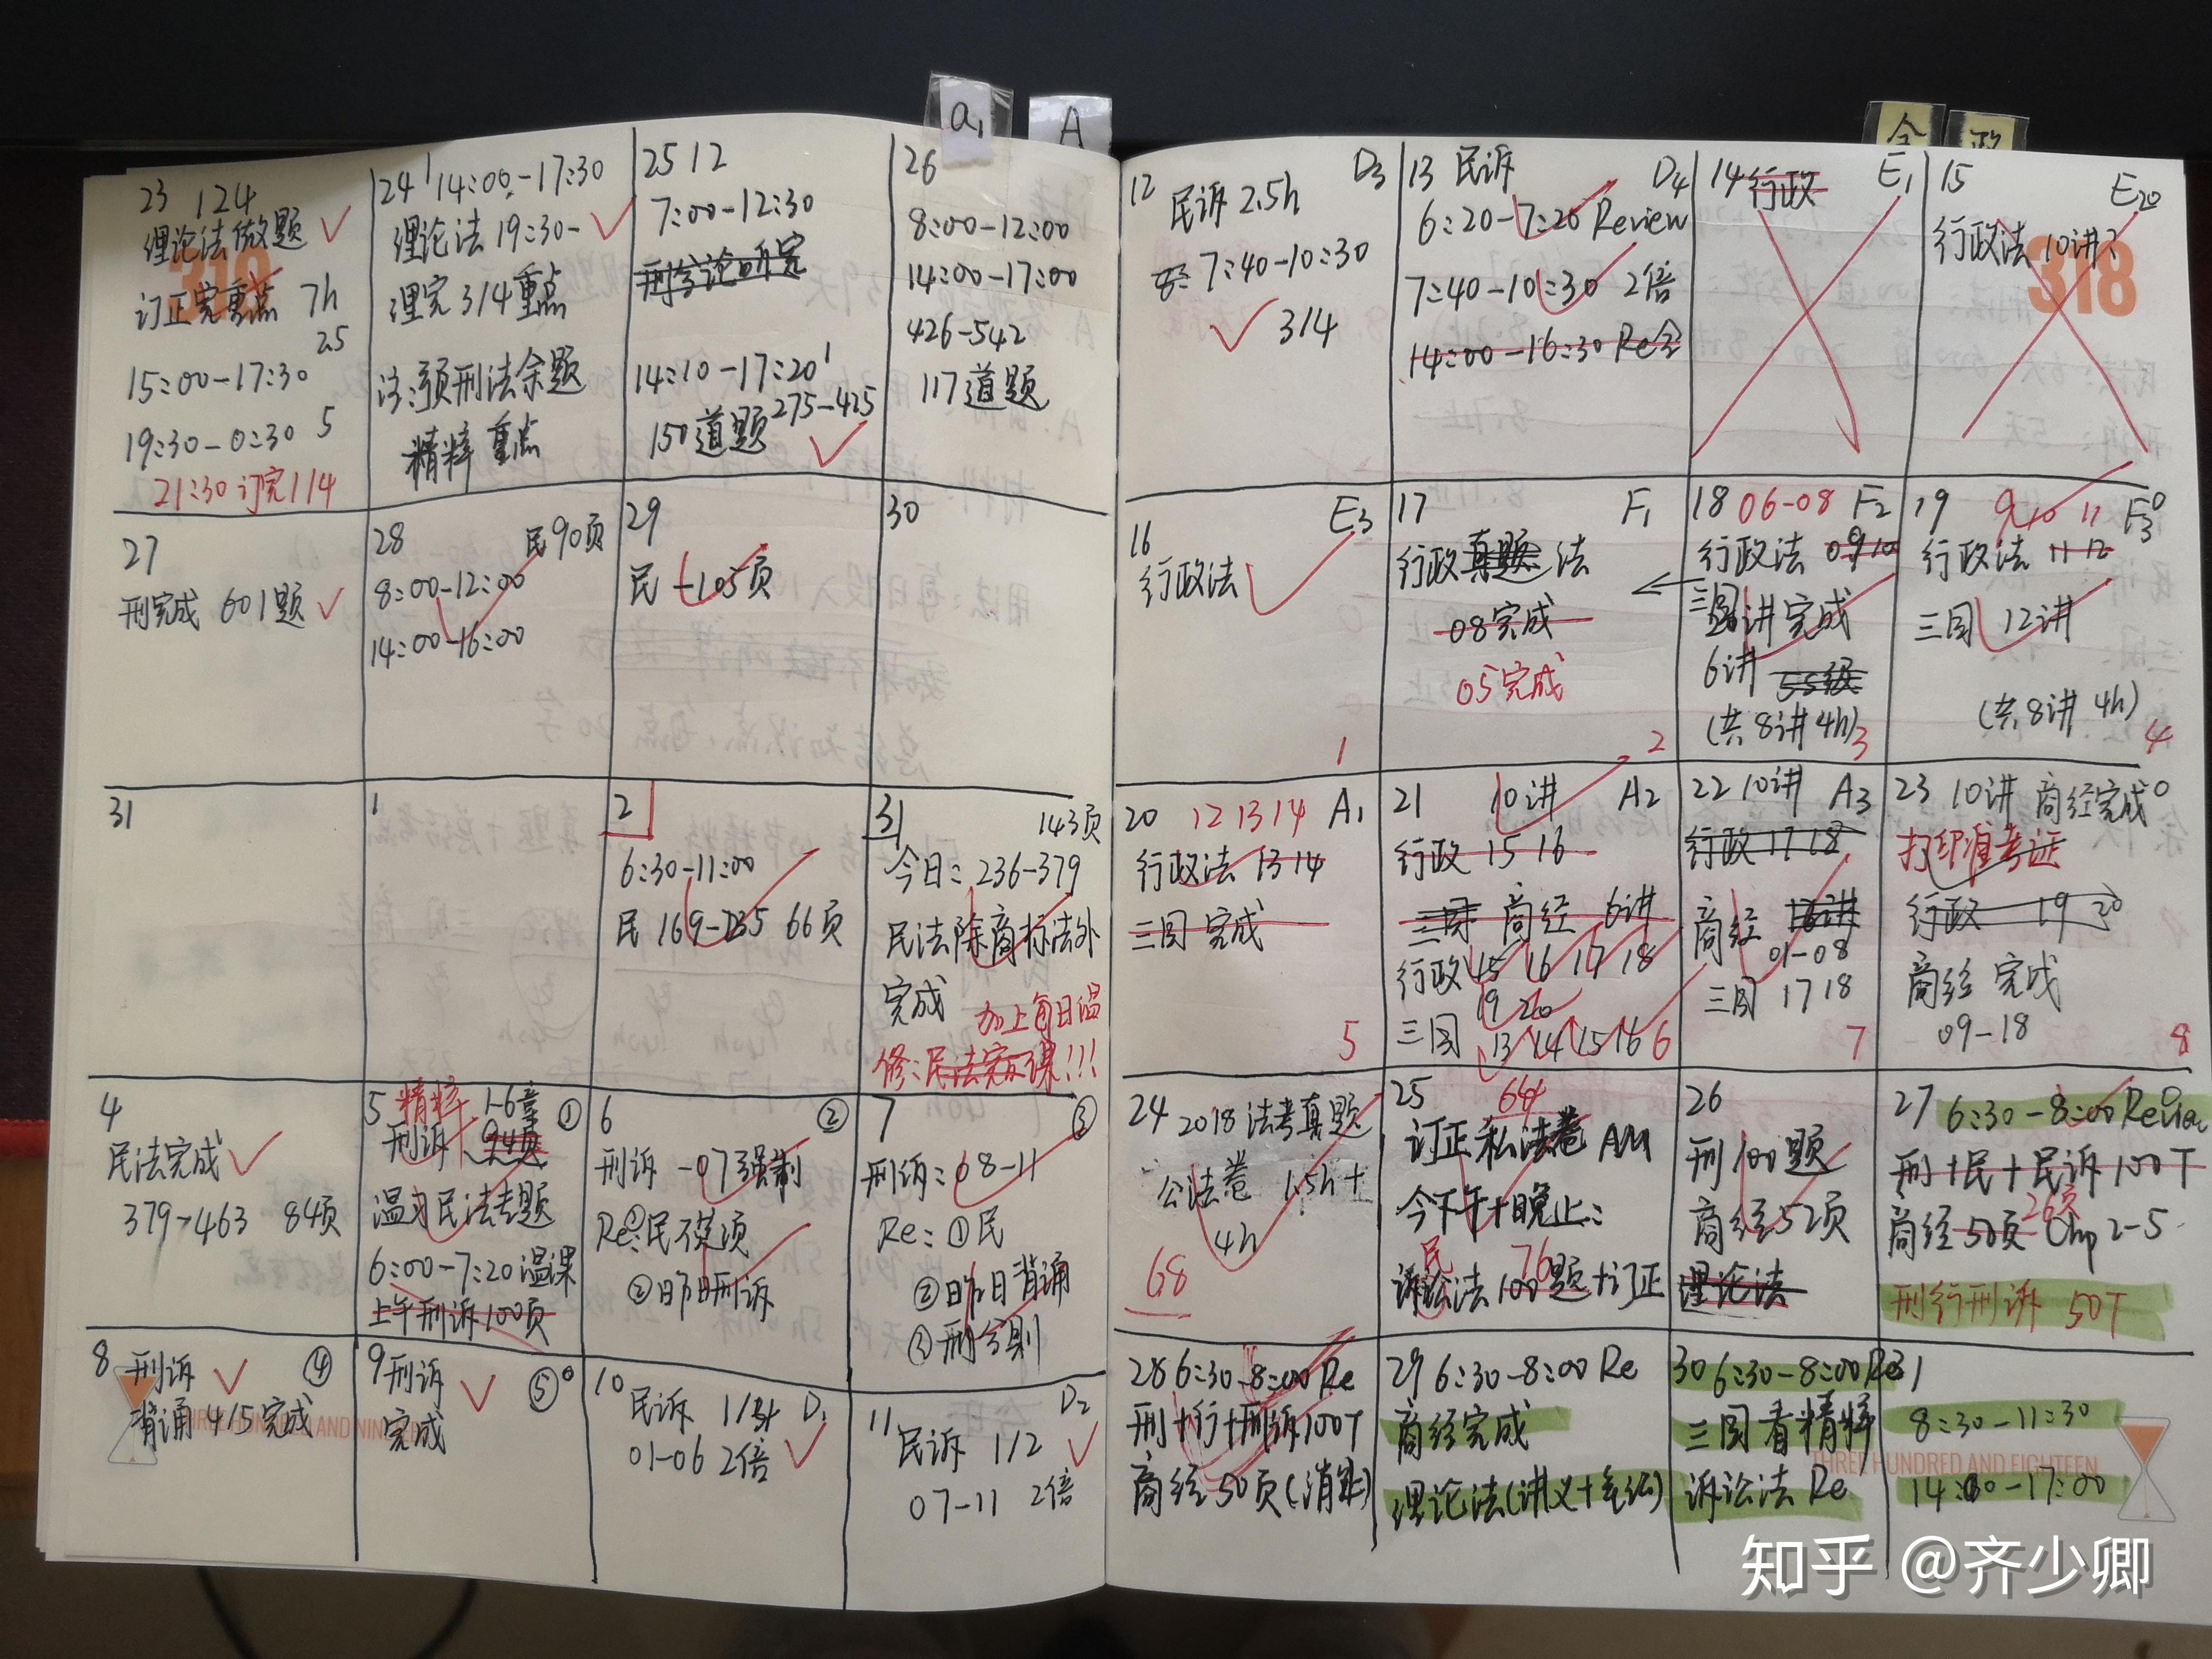 a1
A
23 124
理论法做题
订正完重点 7h
2.5
15:00-17:30
19:30-0:30 5
21:30 订完114
24 14:00-17:30
理论法 19:30-
理完 314重点
注:预刑法余题
精粹 重点
25 12
7:00-12:30
刑分论听完
14:10-17:20
150道题 275-425
26
8:00-12:00
14:00-17:00
426-542
117道题
27
刑完成 601题
28 民90页
8:00-12:00
14:00-16:00
29
民 -105页
30
31
1
2
6:30-11:00
民 169-235 66页
3 143页
今日:236-379
民法除商标法外
完成
加上每日温
修:民法完课!!!
4
民法完成
379-463 84页
5 精粹 1-6章 ①
刑诉
温习民法专题
6:00-7:20温课
上午刑诉100页
6 ②
刑诉 -07强制
Re:①民
②昨日刑诉
7 ③
刑诉:08-11
Re:①民
②昨日背诵
③刑分则
8 刑诉 ④
背诵 4/5完成
THREE HUNDRED AND
9 刑诉 ⑤
完成
10 民诉 D1
01-06 2倍
11 民诉 1/2 D2
07-11 2倍
12 民诉 2.5h D3
7:40-10:30
314
13 民诉 D4
6:20-7:20 Review
7:40-10:30 2倍
14:00-16:30 Re全
14 行政 E1
15 E20
行政法 10讲
318
16 E3
行政法
1
17 F1
行政真题 法
08完成
05完成
2
18 06-08 F2
行政法 0910
三国讲完成
6讲
(共8讲4h) 3
19 9 10 11 F3
行政法 11 12
三国 12讲
(共8讲 4h) 4
20 12 13 14 A1
行政法 13 14
三国 完成
5
21 10讲 A2
行政 15 16
三国 商经 6讲
行政 15 16 17 18
19 20
三国 13 14 15 16 6
22 10讲 A3
行政 17 18
商经
01-08
三国 17 18
7
23 10讲 商经完成
打印准考证
行政 19 20
商经 完成
09-18
8
24 2018法考真题
公法卷 1.5h+
4h
68
25 64
订正 私法卷 AM
今下午+晚上:
民 76
诉讼法100题+订正
26
刑100题
商经52页
理论法
27 6:30-8:00 Review
刑+民+民诉 100T
26页
商经50页 Chp 2-5
刑行刑诉 50T
28 6:30-8:00 Re
刑+行+刑诉100T
商经50页
29 6:30-8:00 Re
商经完成
理论法
30 6:30-8:00 Re
三国看精粹
诉讼法 Re
31
8:30-11:30
THREE HUNDRED AND EIGHTEEN
14:00-17:00
知乎 @齐少卿